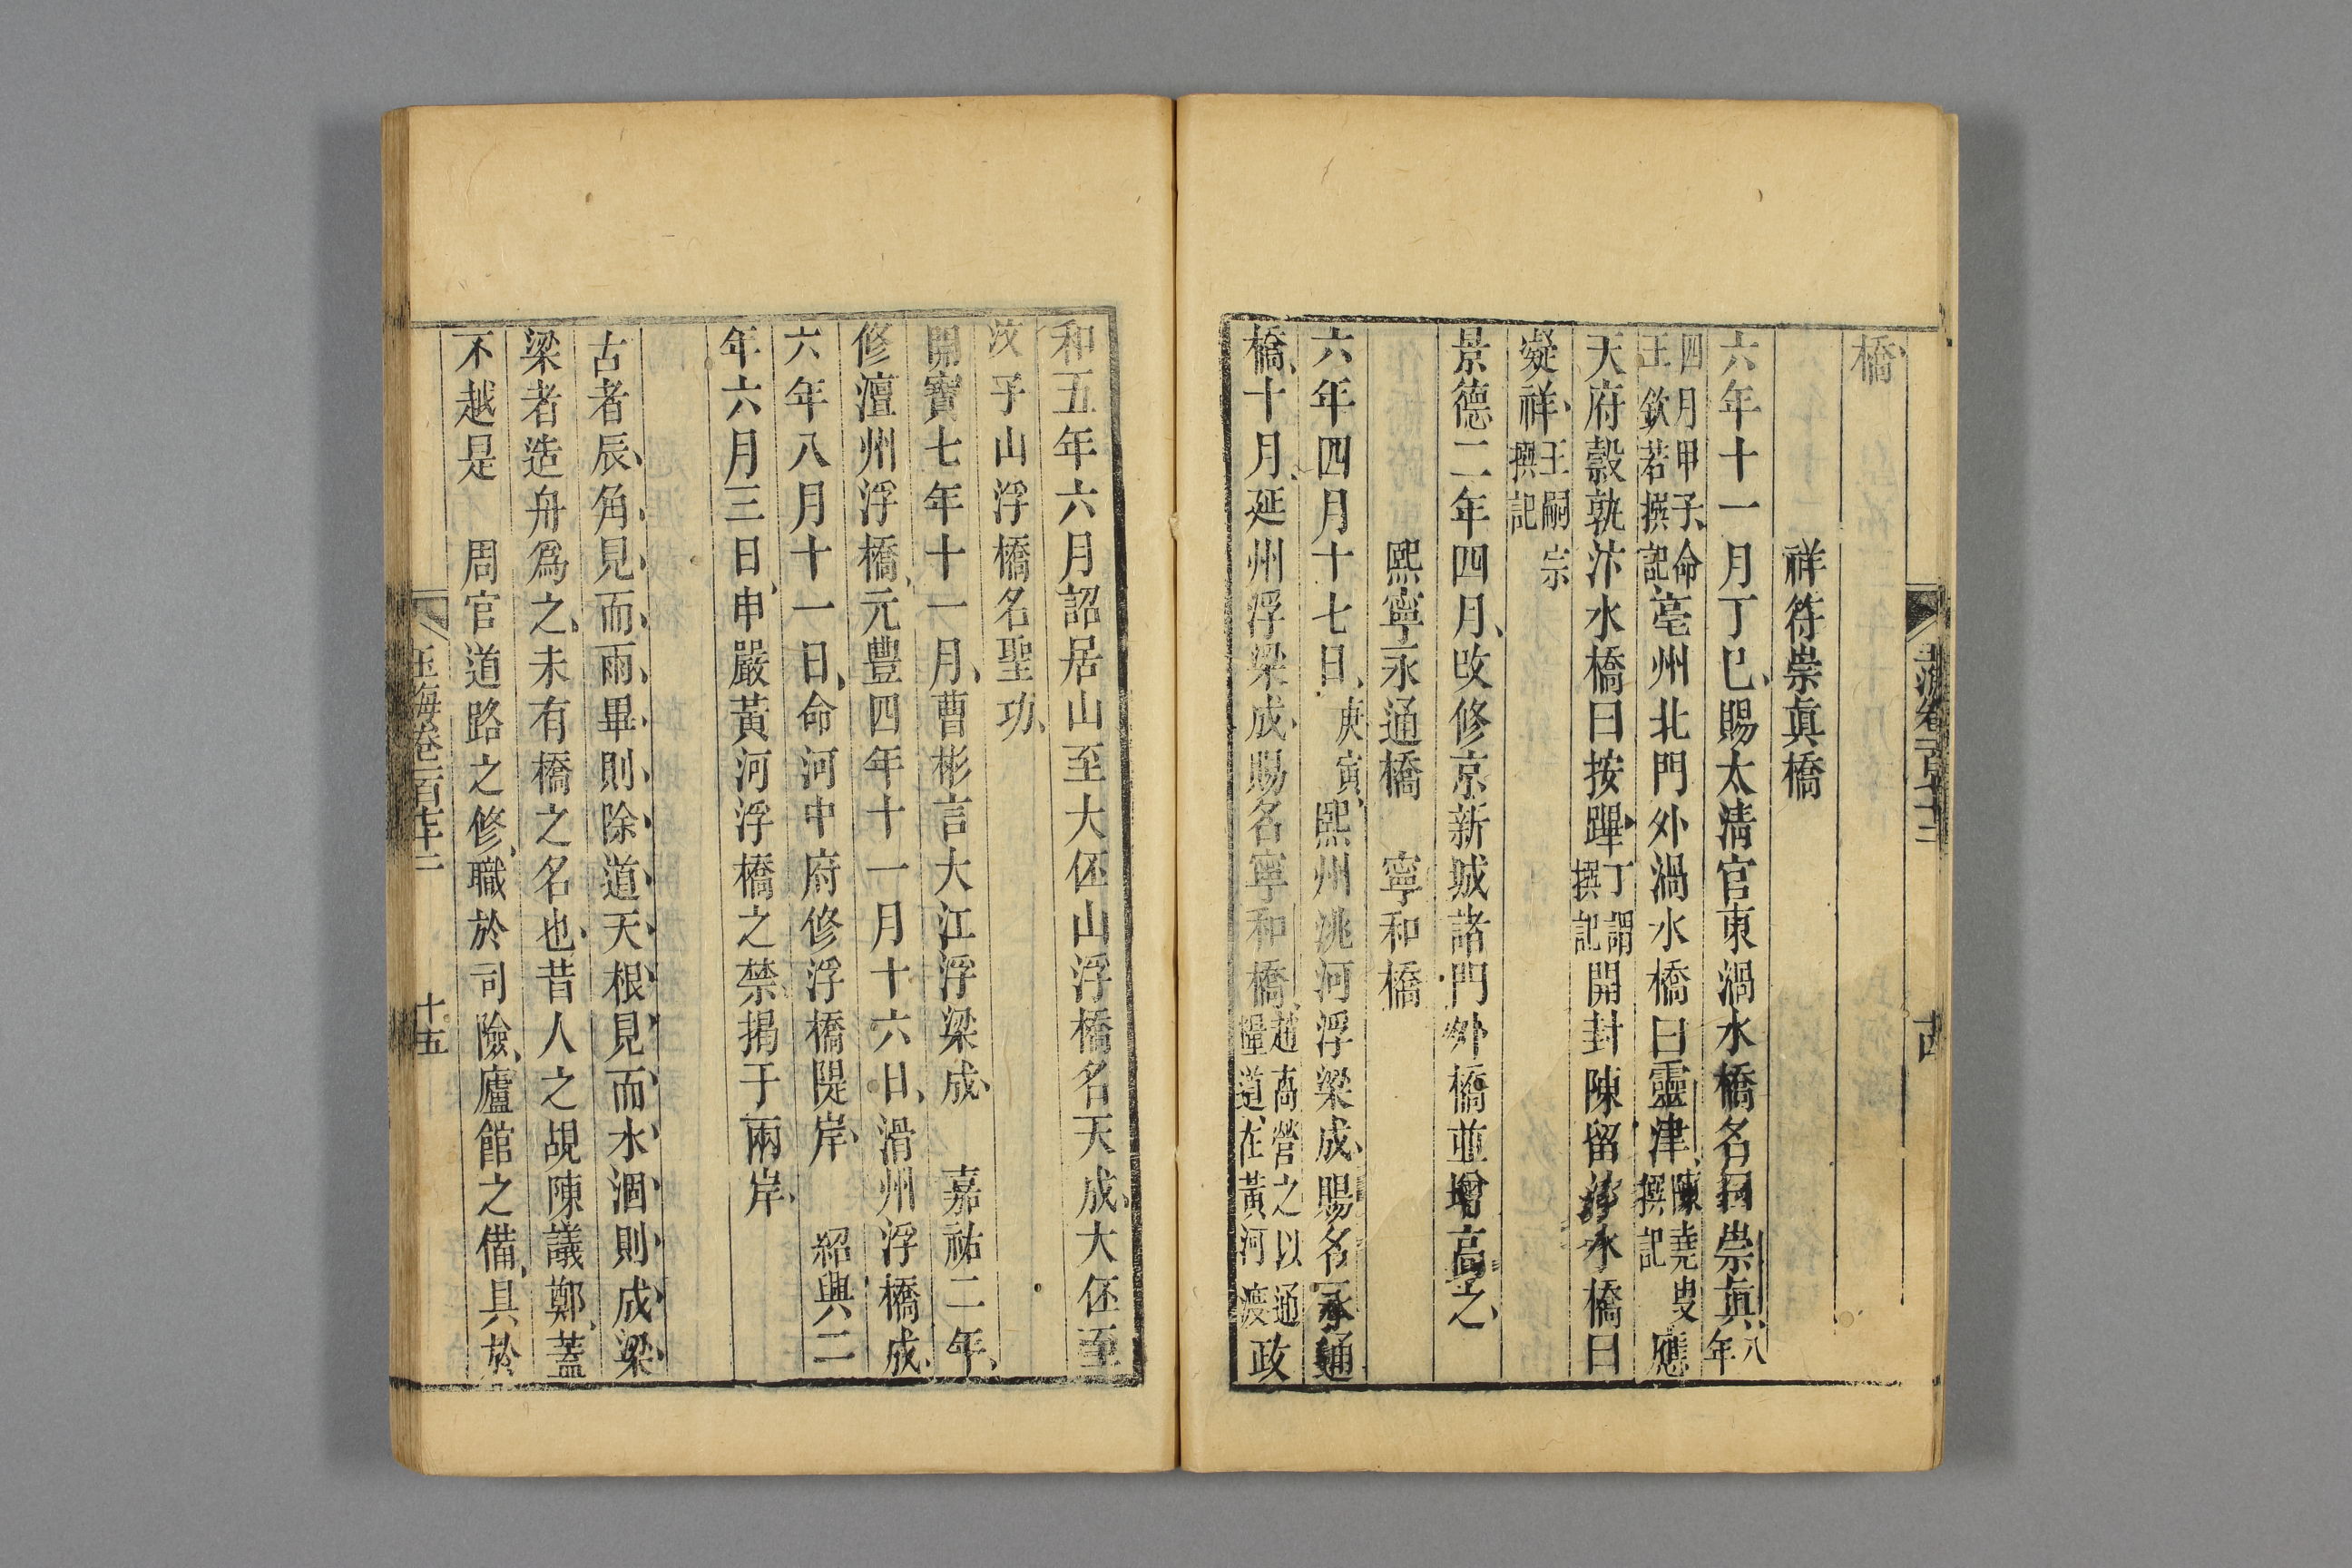 橋
祥符崇眞橋
六年十一月丁巳賜太淸宮東渦水橋名曰崇眞八年
四月甲子命王欽若撰記亳州北門外渦水橋曰靈津陳堯叟撰記應
天府穀孰汴水橋曰按蹕丁謂撰記開封陳留汴水橋曰
凝祥王嗣宗撰記
景德二年四月改修京新城諸門外橋並增高之
熙寧永通橋 寧和橋
六年四月十七日庚寅熙州洮河浮梁成賜名永通
橋十月延州浮梁成賜名寧和橋趙卨營之以通糧道在黃河渡政
和五年六月詔居山至大伾山浮橋名天成大伾至
汶子山浮橋名聖功
開寶七年十一月曹彬言大江浮梁成 嘉祐二年
修澶州浮橋元豐四年十一月十六日滑州浮橋成
六年八月十一日命河中府修浮橋隄岸 紹興二
年六月三日申嚴黃河浮橋之禁揭于兩岸
古者辰角見而雨畢則除道天根見而水涸則成梁
梁者造舟爲之未有橋之名也昔人之覘陳議鄭蓋
不越是 周官道路之修職於司險廬館之備具於
玉海卷一百七十二
十五